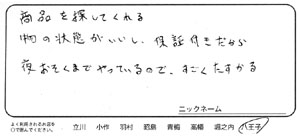 商品を探してくれる
物の状態がいいし、保証付きだから
夜おそくまでやっているので、すごくたすかる
ニックネーム
よく利用されるお店を
○で囲んでください。
立川 小作 羽村 昭島 青梅 高幡 堀之内 八王子